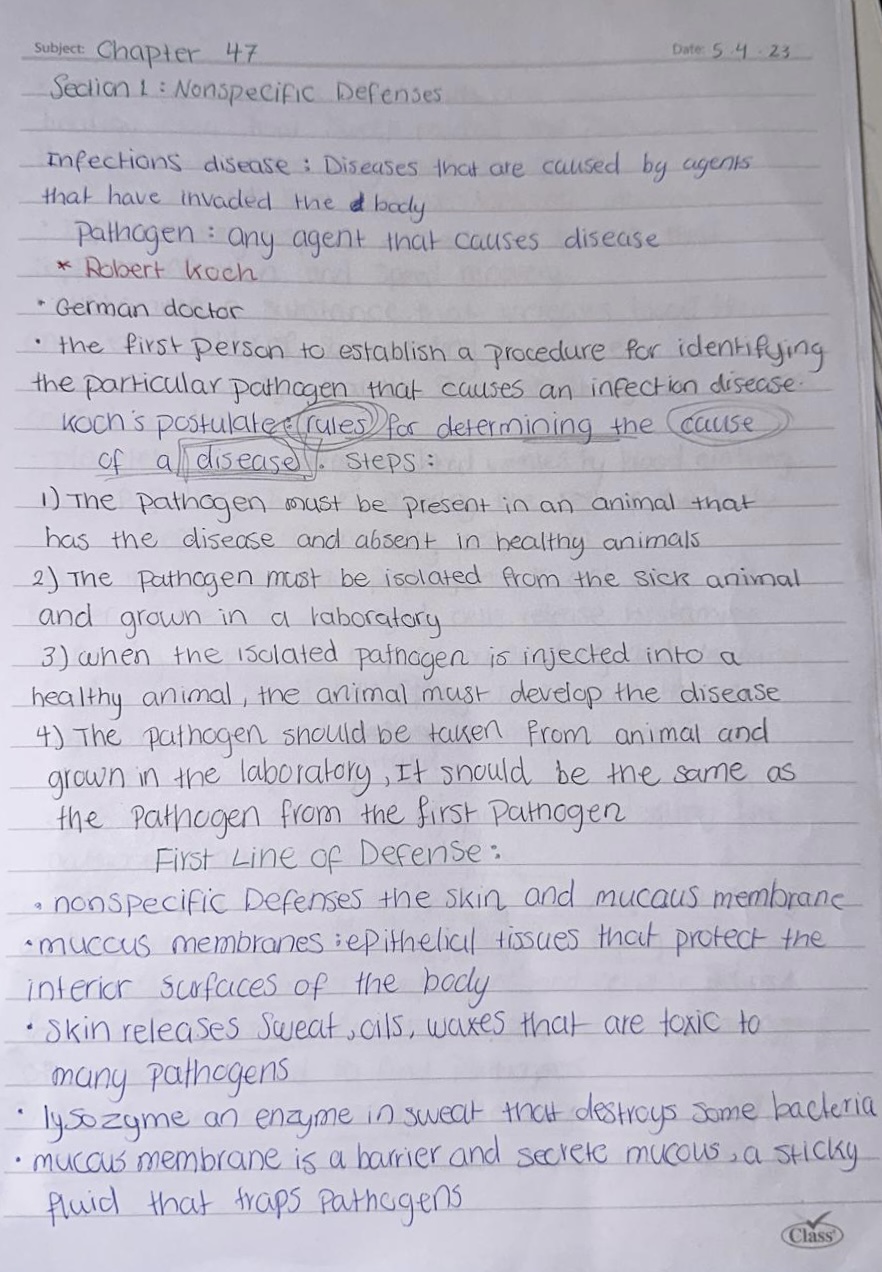 Subject: Chapter 47 Date: 5.4.23
Section 1 : Nonspecific Defenses
Infections disease : Diseases that are caused by agents
that have invaded the body
Pathogen : any agent that causes disease
* Robert Koch
• German doctor
• the first person to establish a procedure for identifying
the particular pathogen that causes an infection disease.
Koch's postulate : rules for determining the cause
of a disease. Steps :
1) The pathogen must be present in an animal that
has the disease and absent in healthy animals
2) The pathogen must be isolated from the sick animal
and grown in a laboratory
3) when the isolated pathogen is injected into a
healthy animal, the animal must develop the disease
4) The pathogen should be taken from animal and
grown in the laboratory, It should be the same as
the Pathogen from the first Pathogen
First Line of Defense :
• nonspecific Defenses the skin and mucous membrane
• muccus membranes : epithelial tissues that protect the
interior surfaces of the body
• Skin releases Sweat, oils, waxes that are toxic to
many pathogens
• lysozyme an enzyme in swear that destroys some bacteria
• muccus membrane is a barrier and secrete mucous, a sticky
fluid that traps Pathogens
Class